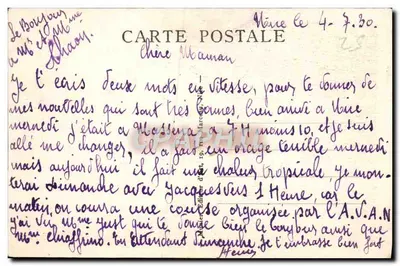 Nice le 4-7.30
Le Bonjour
à Mr et Mme
CARTE POSTALE
Chère Maman
Je t'ecris deux mots en vitesse, pour te donner de
mes nouvelles qui sont très bonnes, bien arrivé a Nice
mercredi j'était a 7H moins 10, et je suis
allé me changer, il a fait un orage terrible mercredi
mais aujourd'hui il fait une chaleur tropicale. Je mon-
terai Dimanche avec Jacques vers 1 Heure, car le
matin, on courra une course organisée par l'A.V.A.N
j'ai vu Mme qui te donne bien le bonjour ainsi que
Mme Chiaffrino. En attendant Dimanche, je t'embrasse bien fort